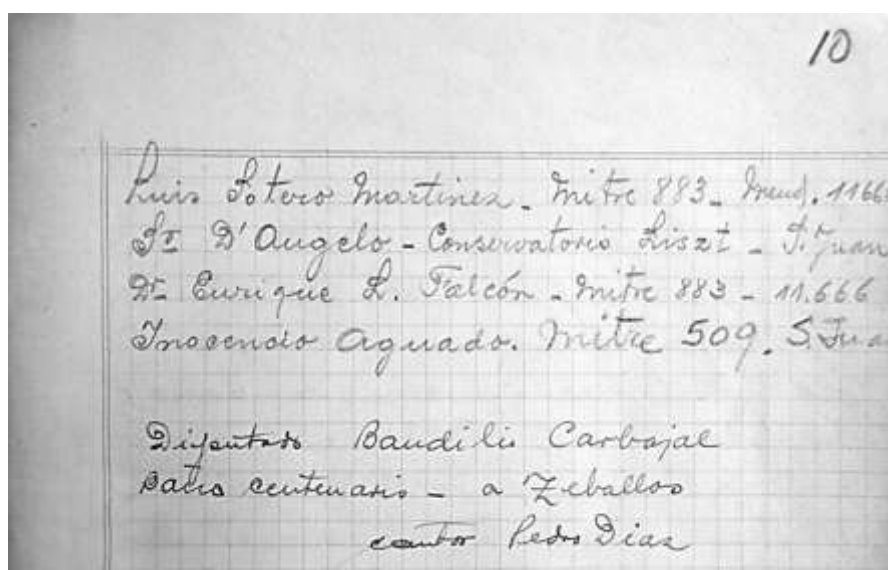 10
Luis Sotero Martinez - Mitre 883 - Mend. 1166
Sr D'Angelo - Conservatorio Liszt - S. Juan
Dr Enrique L. Falcón - Mitre 883 - 11.666
Inocencio Aguado. Mitre 509. S. Jua
Diputado Baudilio Carbajal
Patio centenario - a Zeballos
cantor Pedro Diaz